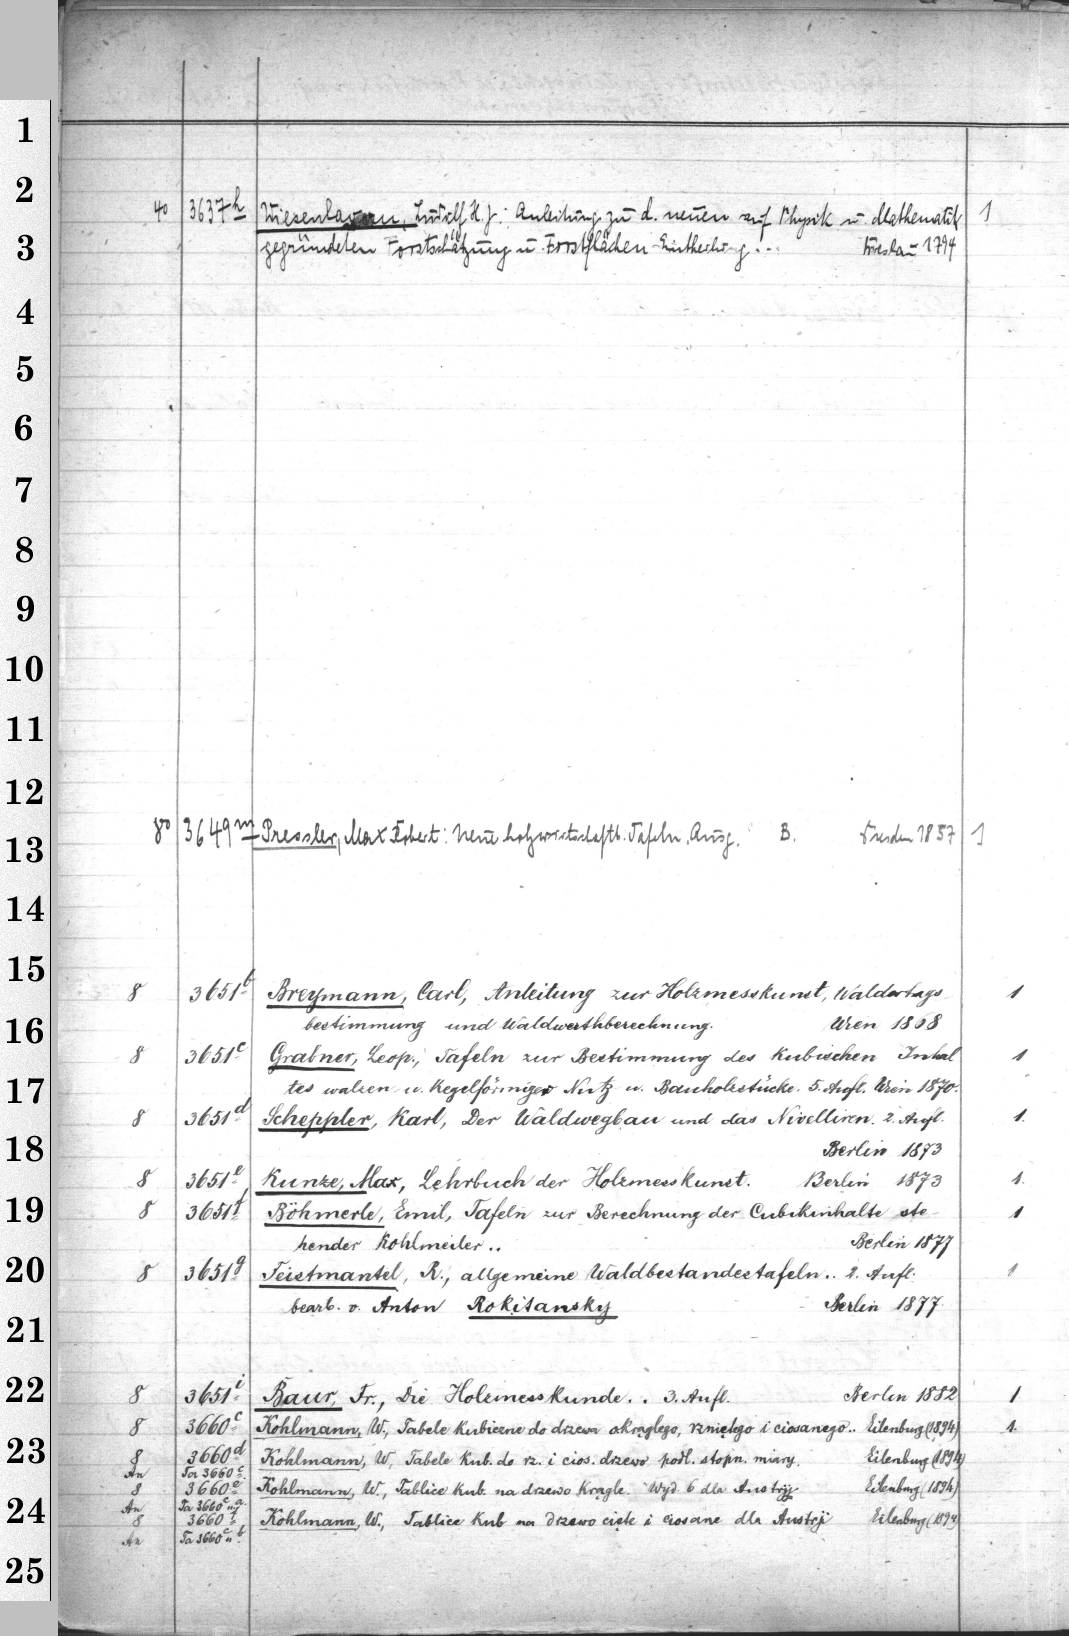 1
2
4o 3637h Wiesenhavern, Ludolf H. J.: Anleitung zu d. neuen auf Physik u. Mathematik 1
3
gegründeten Forstschätzung u. Forstflächen-Eintheilung... Breslau 1794
4
5
6
7
8
9
10
11
12
8o 3649m Pressler, Max Robert: Neue holzwirtschaftl. Tafeln. Ausg. B. Dresden 1857 1
13
14
15
8 3651b Breymann, Carl, Anleitung zur Holzmesskunst, Waldertags- 1
16
bestimmung und Waldwerthberechnung. Wien 1868
8 3651c Grabner, Leop., Tafeln zur Bestimmung des kubischen Inhal 1
17
tes walzen- u. kegelförmiger Nutz- u. Bauholzstücke. 5. Aufl. Wien 1870.
8 3651d Scheppler, Karl, Der Waldwegbau und das Nivelliren. 2. Aufl. 1.
18
Berlin 1873
8 3651e Kunze, Max, Lehrbuch der Holzmesskunst. Berlin 1873 1.
19
8 3651f Böhmerle, Emil, Tafeln zur Berechnung der Cubikinhalte ste- 1
hender Kohlmeiler.. Berlin 1877
20
8 3651g Feistmantel, R., allgemeine Waldbestandestafeln.. 2. Aufl. 1
bearb. v. Anton Rokitansky Berlin 1877
21
22
8 3651i Baur, Fr., Die Holzmesskunde.. 3. Aufl. Berlin 1882 1
8 3660c Kohlmann, W., Tabele kubiczne do drzewa okrągłego, rzniętego i ciosanego.. Eilenburg (1894) 1.
23
8 3660d Kohlmann, W., Tabele kub. do rz. i cios. drzewa podł. stopn. miary. Eilenburg (1894)
An Ta 3660c
8 3660e Kohlmann, W., Tablice kub. na drzewo krągłe. Wyd. 6 dla Austryi Eilenburg (1894)
An Ta 3660c
24
8 3660f Kohlmann, W., Tablice kub. na drzewo cięte i ciosane dla Austrji Eilenburg (1894)
An Ta 3660c
25